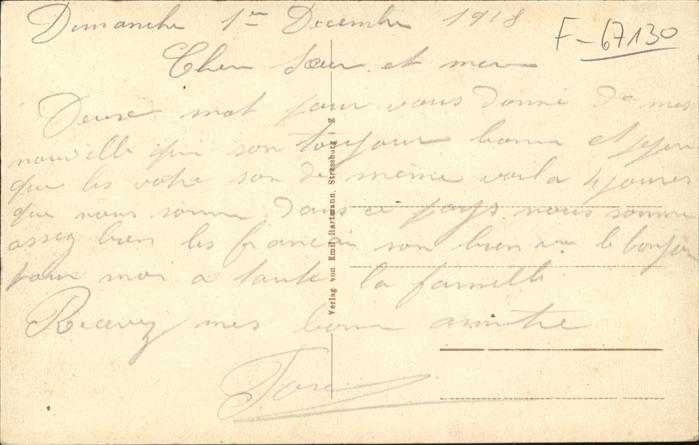 Dimanche 1er Decembre 1918
F-67130
Cher Sœur et mere
Deux mot pour vous donné de mes
nouvelle qui son toujour bonne et
que les votre son de même voila 4 jours
que nous somme dans ce pays nous somme
assez bien les francai son bien vu le bonjour
pour moi a toute la famille
Recevez mes bonne amitie
Verlag von Emil Hartmann, Strassburg i. E